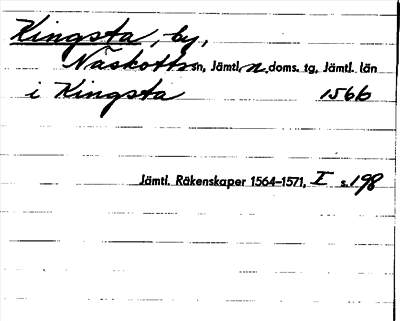 Kingsta, by,
Näskotts sn, Jämtl. n. doms. tg, Jämtl. län
i Kingsta 1566
Jämtl. Räkenskaper 1564–1571, I s. 198